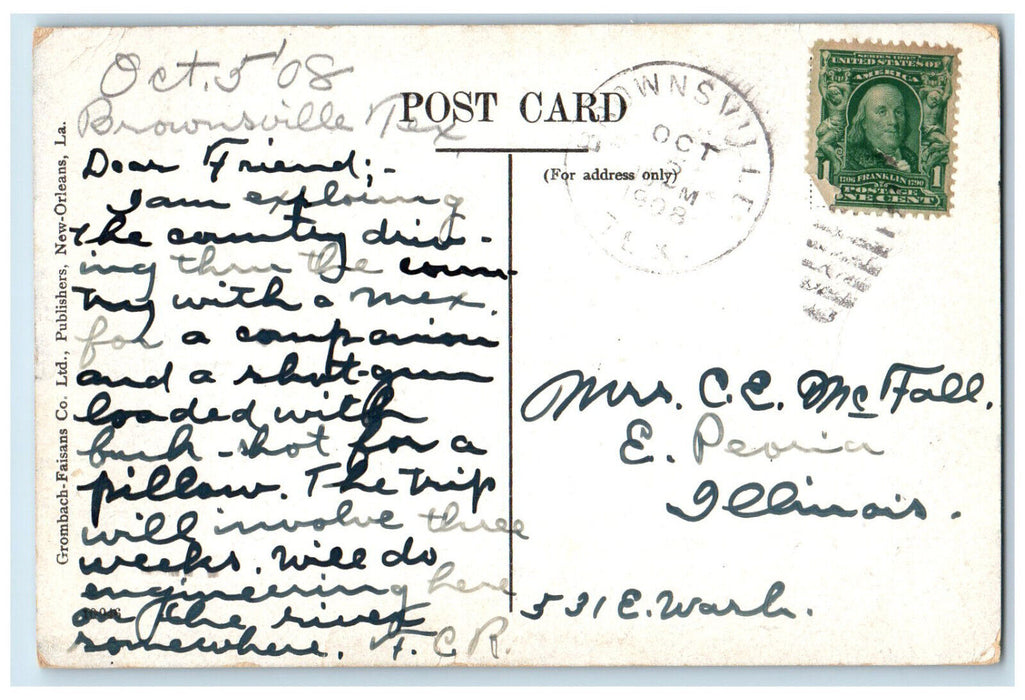 Oct. 5 '08
Brownsville Tex
Dear Friend;-
I am exploring
the country driv-
ing thru the coun-
try with a mex.
for a companion
and a shot-gun
loaded with
buck-shot for a
pillow. The trip
will involve three
weeks. Will do
engineering here
or the river
somewhere. F.C.R.
Grombach-Faisans Co. Ltd., Publishers, New-Orleans, La.
POST CARD
(For address only)
BROWNSVILLE
OCT
5
M
1908
TEX.
SERIES 1902
UNITED STATES OF
AMERICA
1706 FRANKLIN 1790
1 POSTAGE 1
ONE CENT
Mrs. C. E. McFall.
E. Peoria
Illinois.
531 E. Wash.